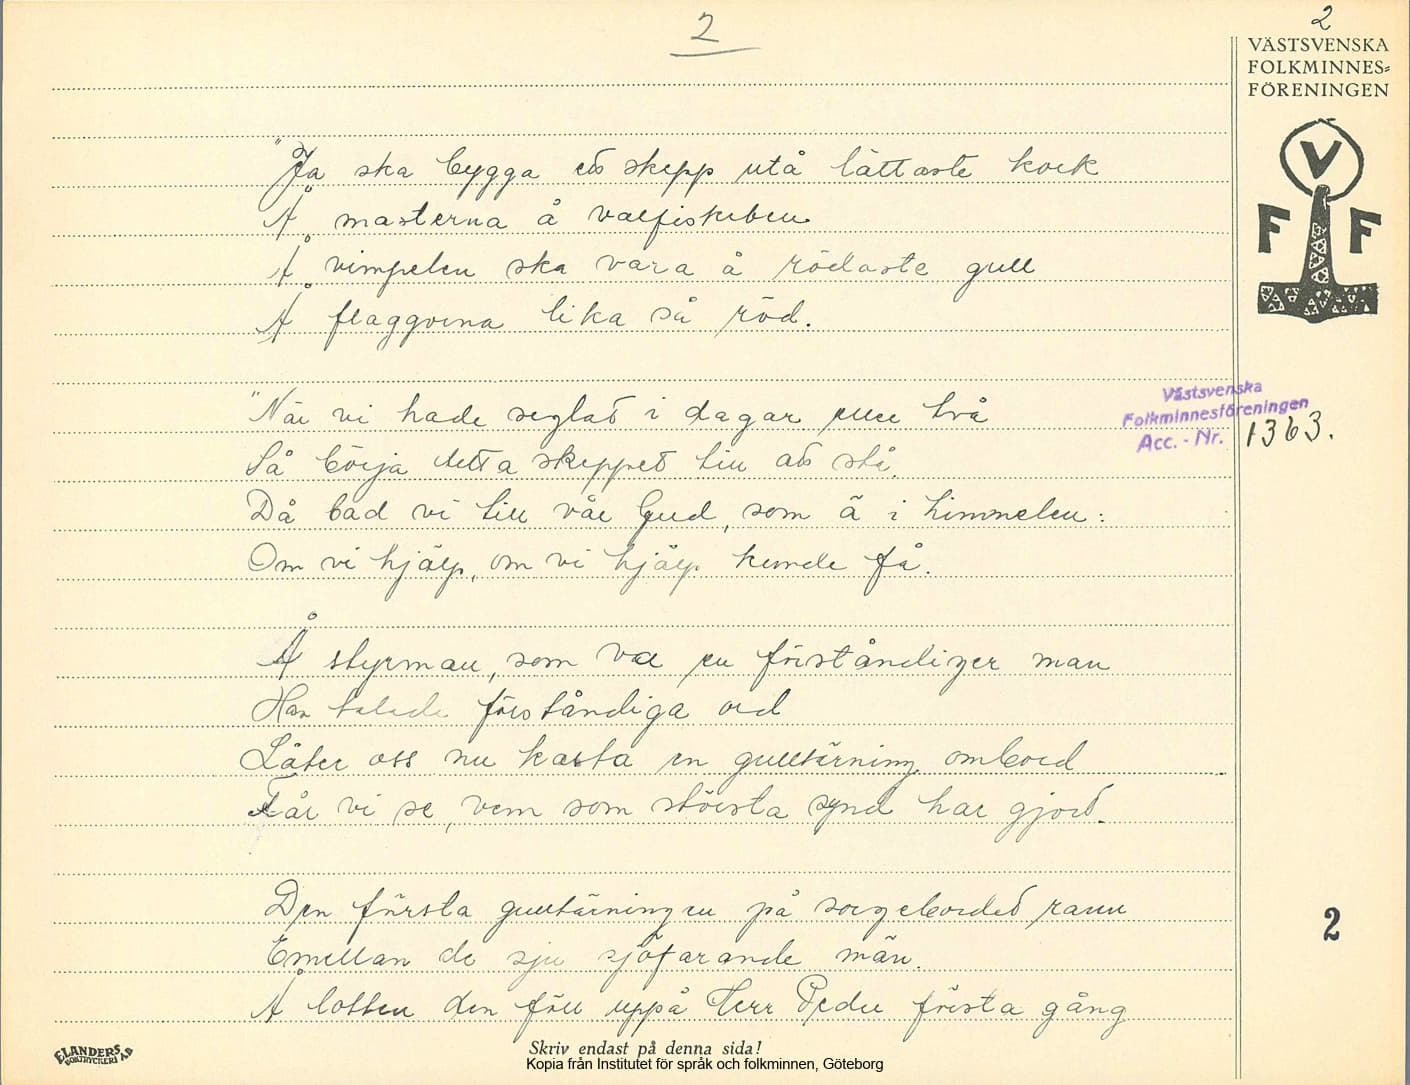 2
2
VÄSTSVENSKA
FOLKMINNES=
FÖRENINGEN
V
F F
"Ja ska bygga ett skepp utå lättaste kork
Å masterna å valfiskeben
Å vimpelen ska vara å rödaste gull
Å flaggorna lika så röd.
"När vi hade seglat i dagar elle två
Så börja detta skeppet till att stå.
Då bad vi till vår Gud, som ä i himmelen:
Om vi hjälp, om vi hjälp kunde få.
Västsvenska
Folkminnesföreningen
Acc. - Nr. 1363.
Å styrman, som var en förståndiger man
Han talade förståndiga ord
Låter oss nu kasta en gulltärning ombord
Får vi se, vem som största synd har gjort.
Den första gulltärningen på sorgebordet rann
Emellan de sju sjöfarande män.
Å lotten den föll uppå Herr Peder första gång
2
ELANDERS
BOKTRYCKERI A-B
Skriv endast på denna sida!
Kopia från Institutet för språk och folkminnen, Göteborg